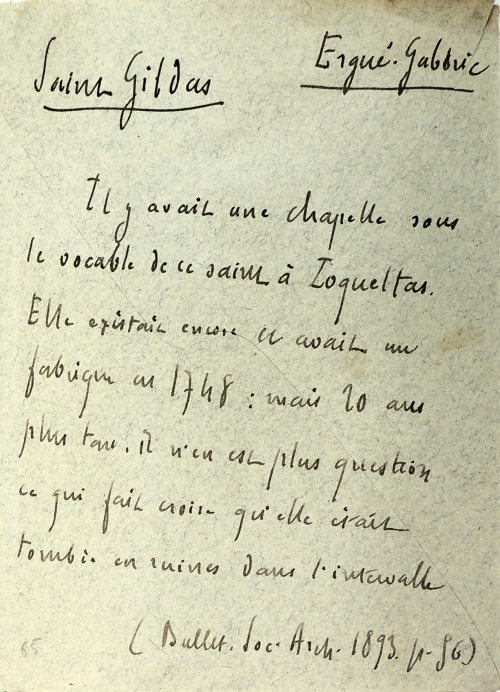 Saint Gildas
Ergué-Gabéric
Il y avait une chapelle sous
le vocable de ce saint à
Elle existait encore et avait un
fabrique en 1748 ; mais 20 ans
plus tard, il n'en est plus question
ce qui fait croire qu'elle était
tombée en ruines dans l'intervalle
(Bullet. Soc. Arch. 1893. p.
65